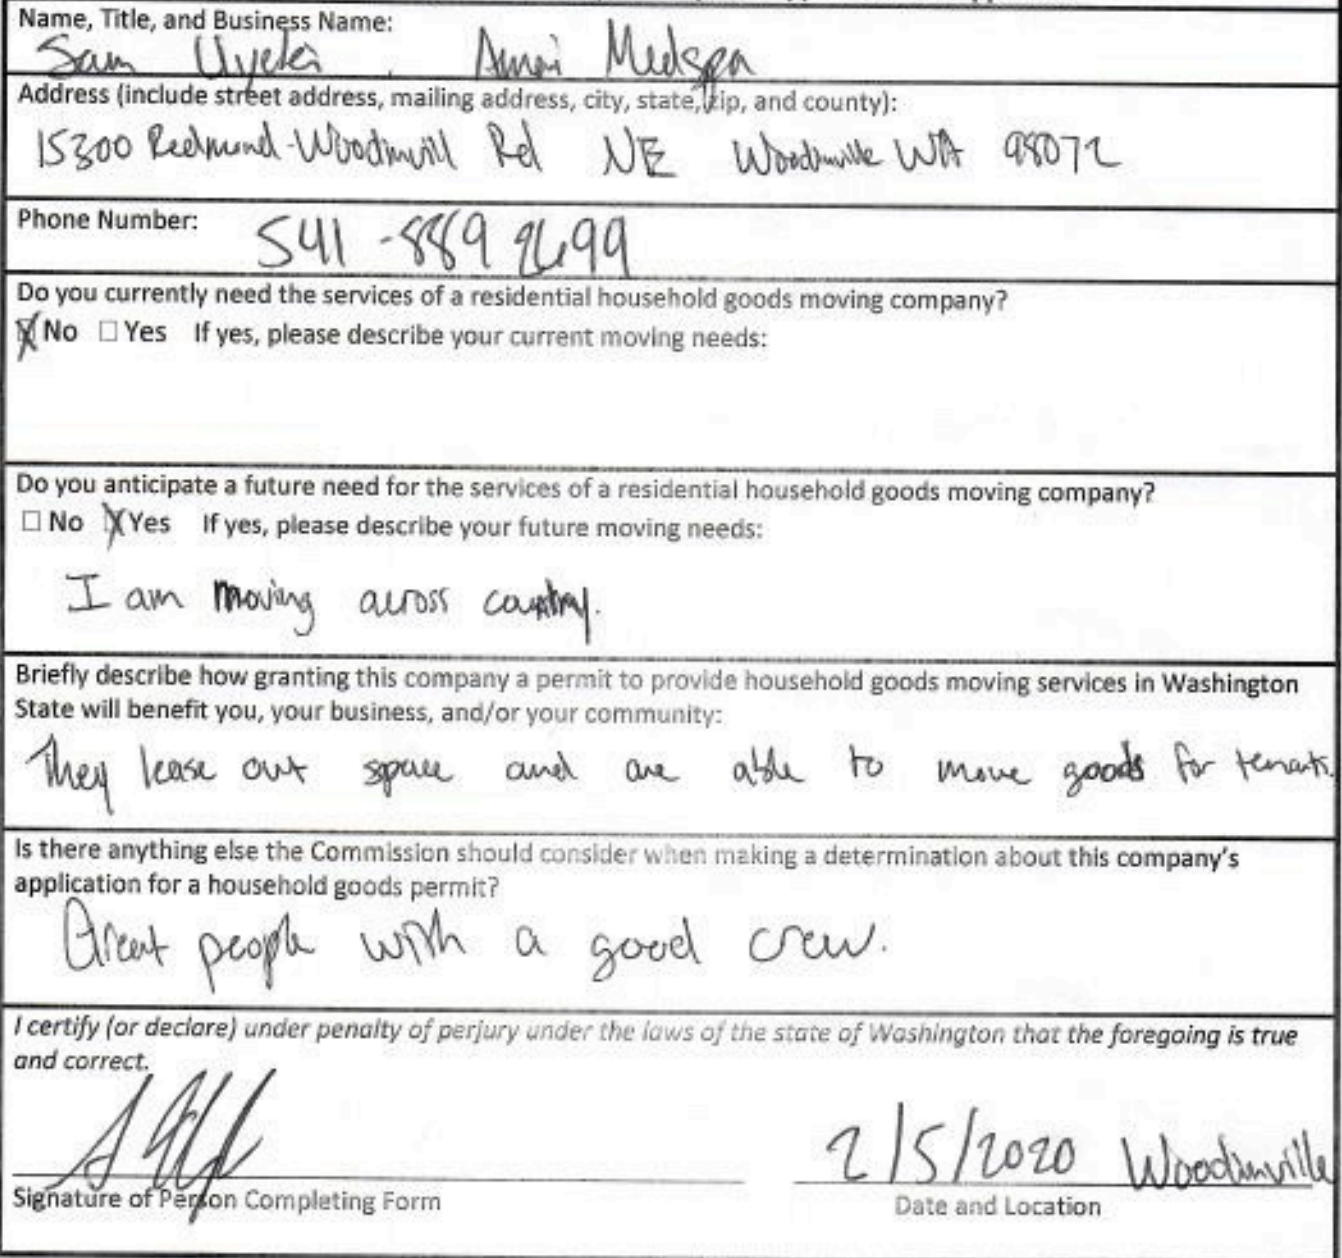 Name, Title, and Business Name:
Sam Medspa
Address (include street address, mailing address, city, state, zip, and county):
15300 Redmond-Woodinvill Rd NE Woodinville WA 98072
Phone Number: 541-889 2699
Do you currently need the services of a residential household goods moving company?
☒ No ☐ Yes If yes, please describe your current moving needs:
Do you anticipate a future need for the services of a residential household goods moving company?
☐ No ☒ Yes If yes, please describe your future moving needs:
I am moving across country.
Briefly describe how granting this company a permit to provide household goods moving services in Washington
State will benefit you, your business, and/or your community:
They lease out space and are able to move goods for tenants.
Is there anything else the Commission should consider when making a determination about this company's
application for a household goods permit?
Great people with a good crew.
I certify (or declare) under penalty of perjury under the laws of the state of Washington that the foregoing is true
and correct.
2/5/2020 Woodinville
Signature of Person Completing Form Date and Location